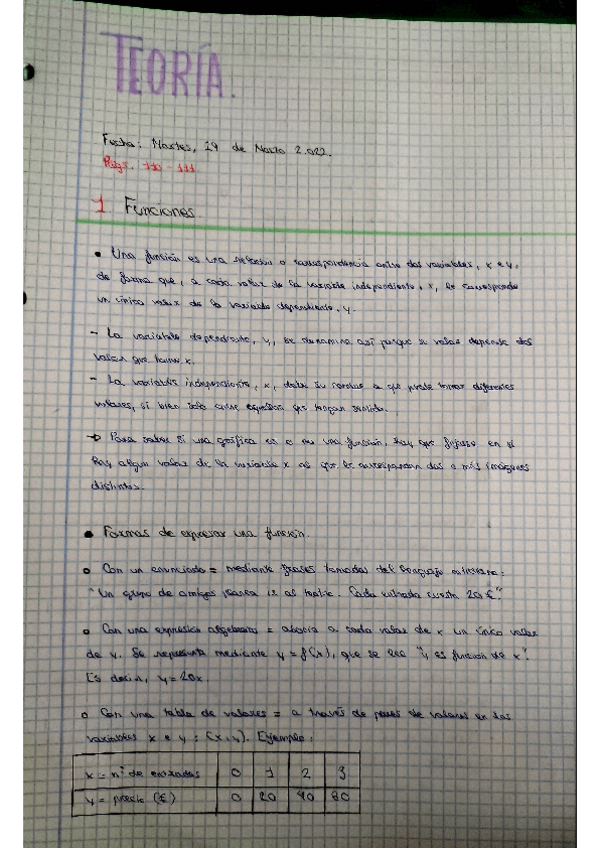 TEORÍA.
Fecha: Martes, 29 de Marzo 2.022.
Págs. 110 - 111
1. Funciones.
• Una función es una relación o correspondencia entre dos variables, x e y,
de forma que, a cada valor de la variable independiente, x, le corresponde
un único valor de la variable dependiente, y.
- La variable dependiente, y, se denomina así porque su valor depende del
valor que tome x.
- La variable independiente, x, debe su nombre a que puede tomar diferentes
valores, si bien solo entre aquellos que tengan sentido.
→ Para saber si una gráfica es o no una función, hay que fijarse en si
hay algún valor de la variable x al que le correspondan dos o más imágenes
distintas.
• Formas de expresar una función.
o Con un enunciado = mediante frases tomadas del lenguaje cotidiano:
"Un grupo de amigos quiere ir al teatro. Cada entrada cuesta 20 €"
o Con una expresión algebraica = asocia a cada valor de x un único valor
de y. Se representa mediante y = f(x), que se lee "y es función de x".
Es decir, y = 20x.
o Con una tabla de valores = a través de pares de valores en las
variables x e y : (x, y). Ejemplo:
x = nº de entradas 0 1 2 3
y = precio (€) 0 20 40 80